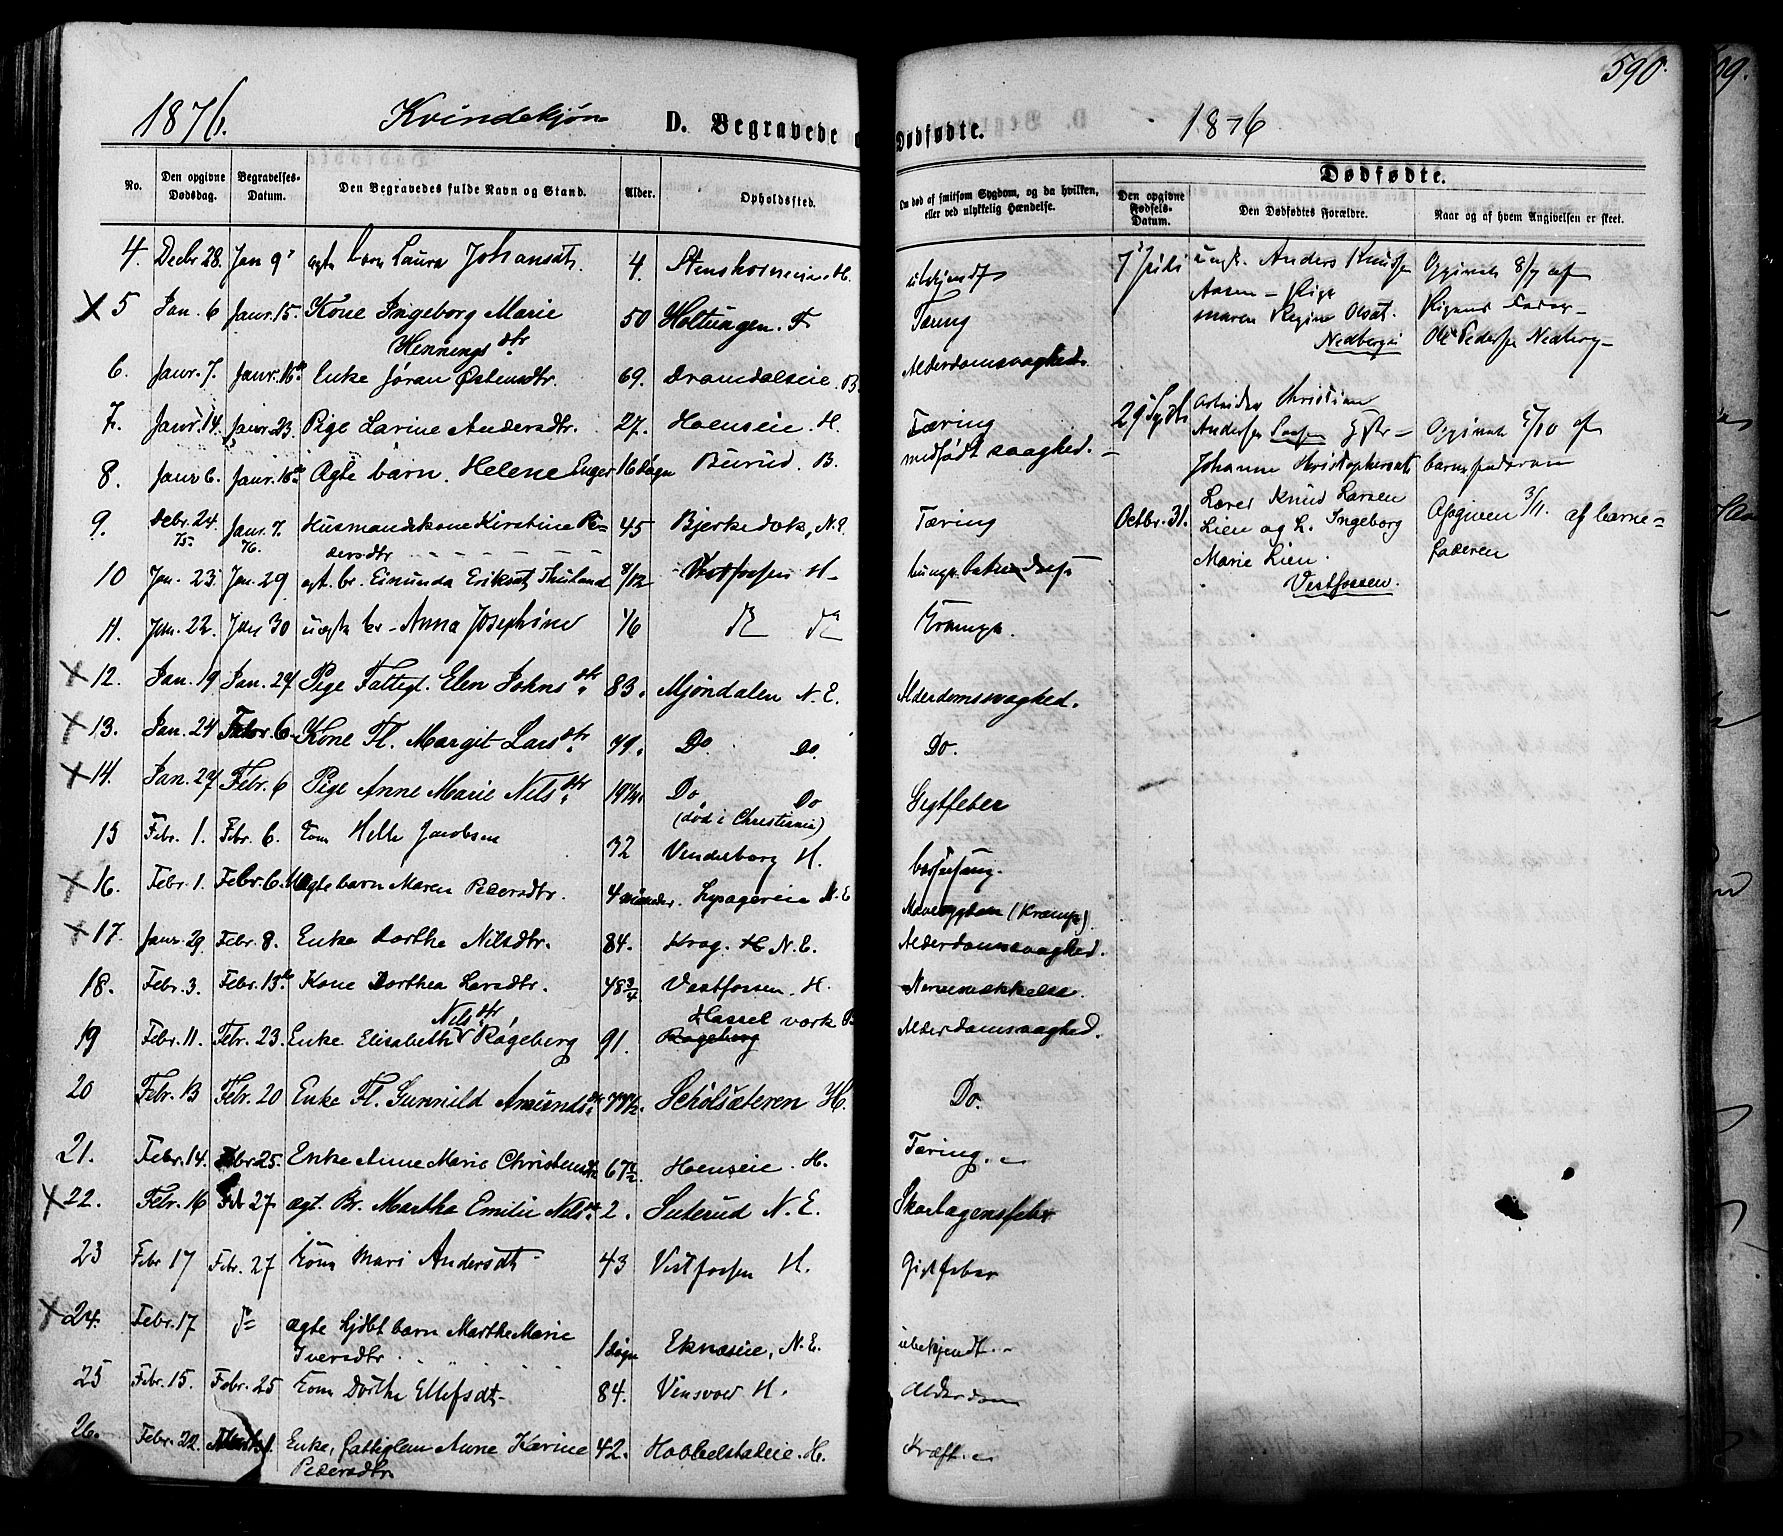 590.
1876. Kvindekjøn D. Begravede
Dødfødte. 1876
No. Den opgivne Dødsdag. Begravelses-Datum. Den Begravedes fulde Navn og Stand. Alder. Opholdssted.
Om død af smitsom Sygdom, og da hvilken, eller ved ulykkelig Hændelse.
Dødfødte.
Den opgivne Fødsels-Datum. Den Dødfødtes Forældre. Naar og af hvem Angivelsen er skeet.
4. Decbr 28. Jan 9 ægte barn Laura Johansdt. 4. H. ubekjendt
X 5 Jan. 6 Janr. 15. Kone Ingeborg Marie 50 Holtungen. F Tæring
Hennings dtr
6. Janr. 7. Janr. 16 Enke Jøran Østensdtr. 69. Dramdalseie. B Alderdomssvaghed.
7. Janr. 14. Janr. 23. Pige Larine Andersdtr. 27. Hoenseie. H. Tæring
8. Janr 6. Janr. 16 Ægte barn. Helene Enger 16 Døgn Burud. B. medfødt svaghed.
9. Debr. 24. 75 Janr. 7. 76. Husmandskone Kirstine Pe- 45 Bjerkedok, N.E. Tæring
dersdtr
10 Jan. 23. Jan. 29 ægt. br. Eriksdt 8/12 Vestfossen H
11. Jan. 22. Jan 30 uægte br. Anna Josephine 1/6 Krampe.
X 12. Jan. 19 Jan. 27 Pige Fattigl. Elen Johns dtr. 83. Mjøndalen N. E. Alderdomssvaghed.
X 13. Jan. 24 Febr. 6 Kone Fl. Margit Lars dtr. Do Do. Do.
X 14. Jan. 27 Febr. 6 Pige Anne Marie Nils dtr. Do Do Gigtfeber
15 Febr. 1. Febr. 6. Helle Jacobsen 32 (død i Christiania)
H.
X 16. Febr. 1. Febr. 6. Ægte barn Maren Pedersdtr. 4 N. E Mavesygdom (Krampe).
X 17. Janr. 29 Febr. 8. Enke Dorthe Nilsdtr. 84. Krog. N. E. Alderdomssvaghed.
18. Febr. 3. Febr. 13 Kone Dorthea Larsdtr. 48 3/4 Vestfossen. H.
19 Febr. 11. Febr. 23. Enke Elisabeth Nils dtr, Røgeberg 91. Hassel værk Røgeberg Alderdomssvaghed.
20 Febr. 13 Febr. 20 Enke Fl. Gunnild Amunds dtr. H. Do.
21. Febr. 14. Febr 25. Enke Anne Marie Christensdtr 67 1/2 Hoenseie. H. Tæring.
X 22. Febr. 16 Febr 27 ægt. Br. Martha Emilie Nils dtr. 2. N. E. Skarlagensfeber
23 Febr 17 Febr. 27 Kone Mari Andersdt 43 Vestfossen H. Gigtfeber
X 24. Febr. 17 do ægte hjdbt barn Marthe Marie 1 døgn Eknæseie, N. E. ubekjendt.
Iversdtr.
25 Febr. 15. Febr. 25 Kone Dorthe Ellefsdt 84. H. Alderdom
26. Febr. 22. Enke, fattiglem Anne Karine 42. Hobbelstadeie. H. Kræft.
Pedersdtr
7 Juli ungk. Anders Knudsen Opgivet 8/7 af
Aasen – Pige Pigens Fader
Maren Regine Olsdt. Ole Pedersen Nedberg
Nedberg
29 Arbeider Christian
Andersen Opgivet 5/10 af
Johanne Christophersdt barnefaderen
Octbr. 31. Lærer Knud Larsen Opgiven 3/11. af barne-
Lien og h. Ingeborg faderen
Marie Lien.
Vestfossen.